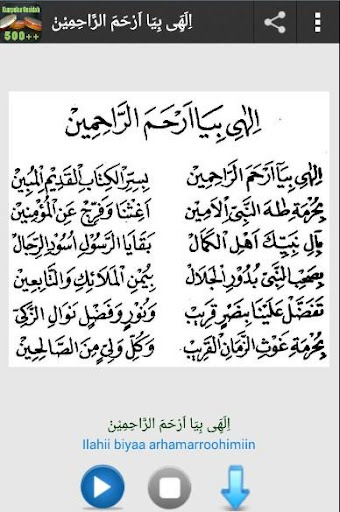 Kumpulan Qosidah
500++
اِلَهِى بِيَا اَرْحَمَ الرَّاحِمِيْنْ
اِلٰهِي بِيَا اَرْحَمَ الرَّاحِمِيْنْ
اِلٰهِي بِيَآ اَرْحَمَ الرَّاحِمِيْنْ بِسِرِّ الْكِتَابِ الْقَدِيْمِ الْمُبِيْنْ
بِحُرْمَةِ طٰهَ النَّبِيِّ الْاَمِيْنْ اَغِثْنَا وَفَرِّجْ عَنِ الْمُؤْمِنِيْنْ
بِاٰلِ نَبِيِّكَ اَهْلِ الْكَمَالْ بَقَايَا الرَّسُوْلِ اُسُوْدِ الرِّجَالْ
بِصَحْبِ النَّبِيِّ بُدُوْرِ الْجَلَالْ بِيُمْنِ الْمَلَائِكِ وَالتَّابِعِيْنْ
تَفَضَّلْ عَلَيْنَا بِنَصْرٍ قَرِيْبْ وَنُوْرٍ وَفَضْلٍ نَوَالِ الزَّكِيْ
بِحُرْمَةِ غَوْثِ الزَّمَانِ الْقَرِيْبْ وَكُلِّ وَلِيٍّ مِنَ الصَّالِحِيْنْ
اِلَهِى بِيَا اَرْحَمَ الرَّاحِمِيْنْ
Ilahii biyaa arhamarroohimiin